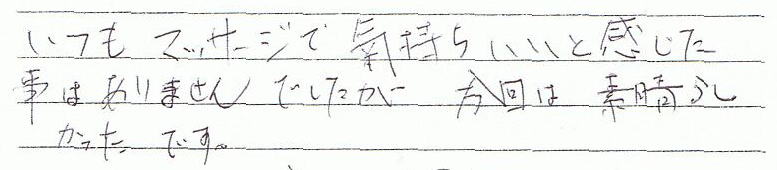 いつも マッサージで 気持ち いいと感じた
事はありません でしたが 今回は 素晴らし
かった です。